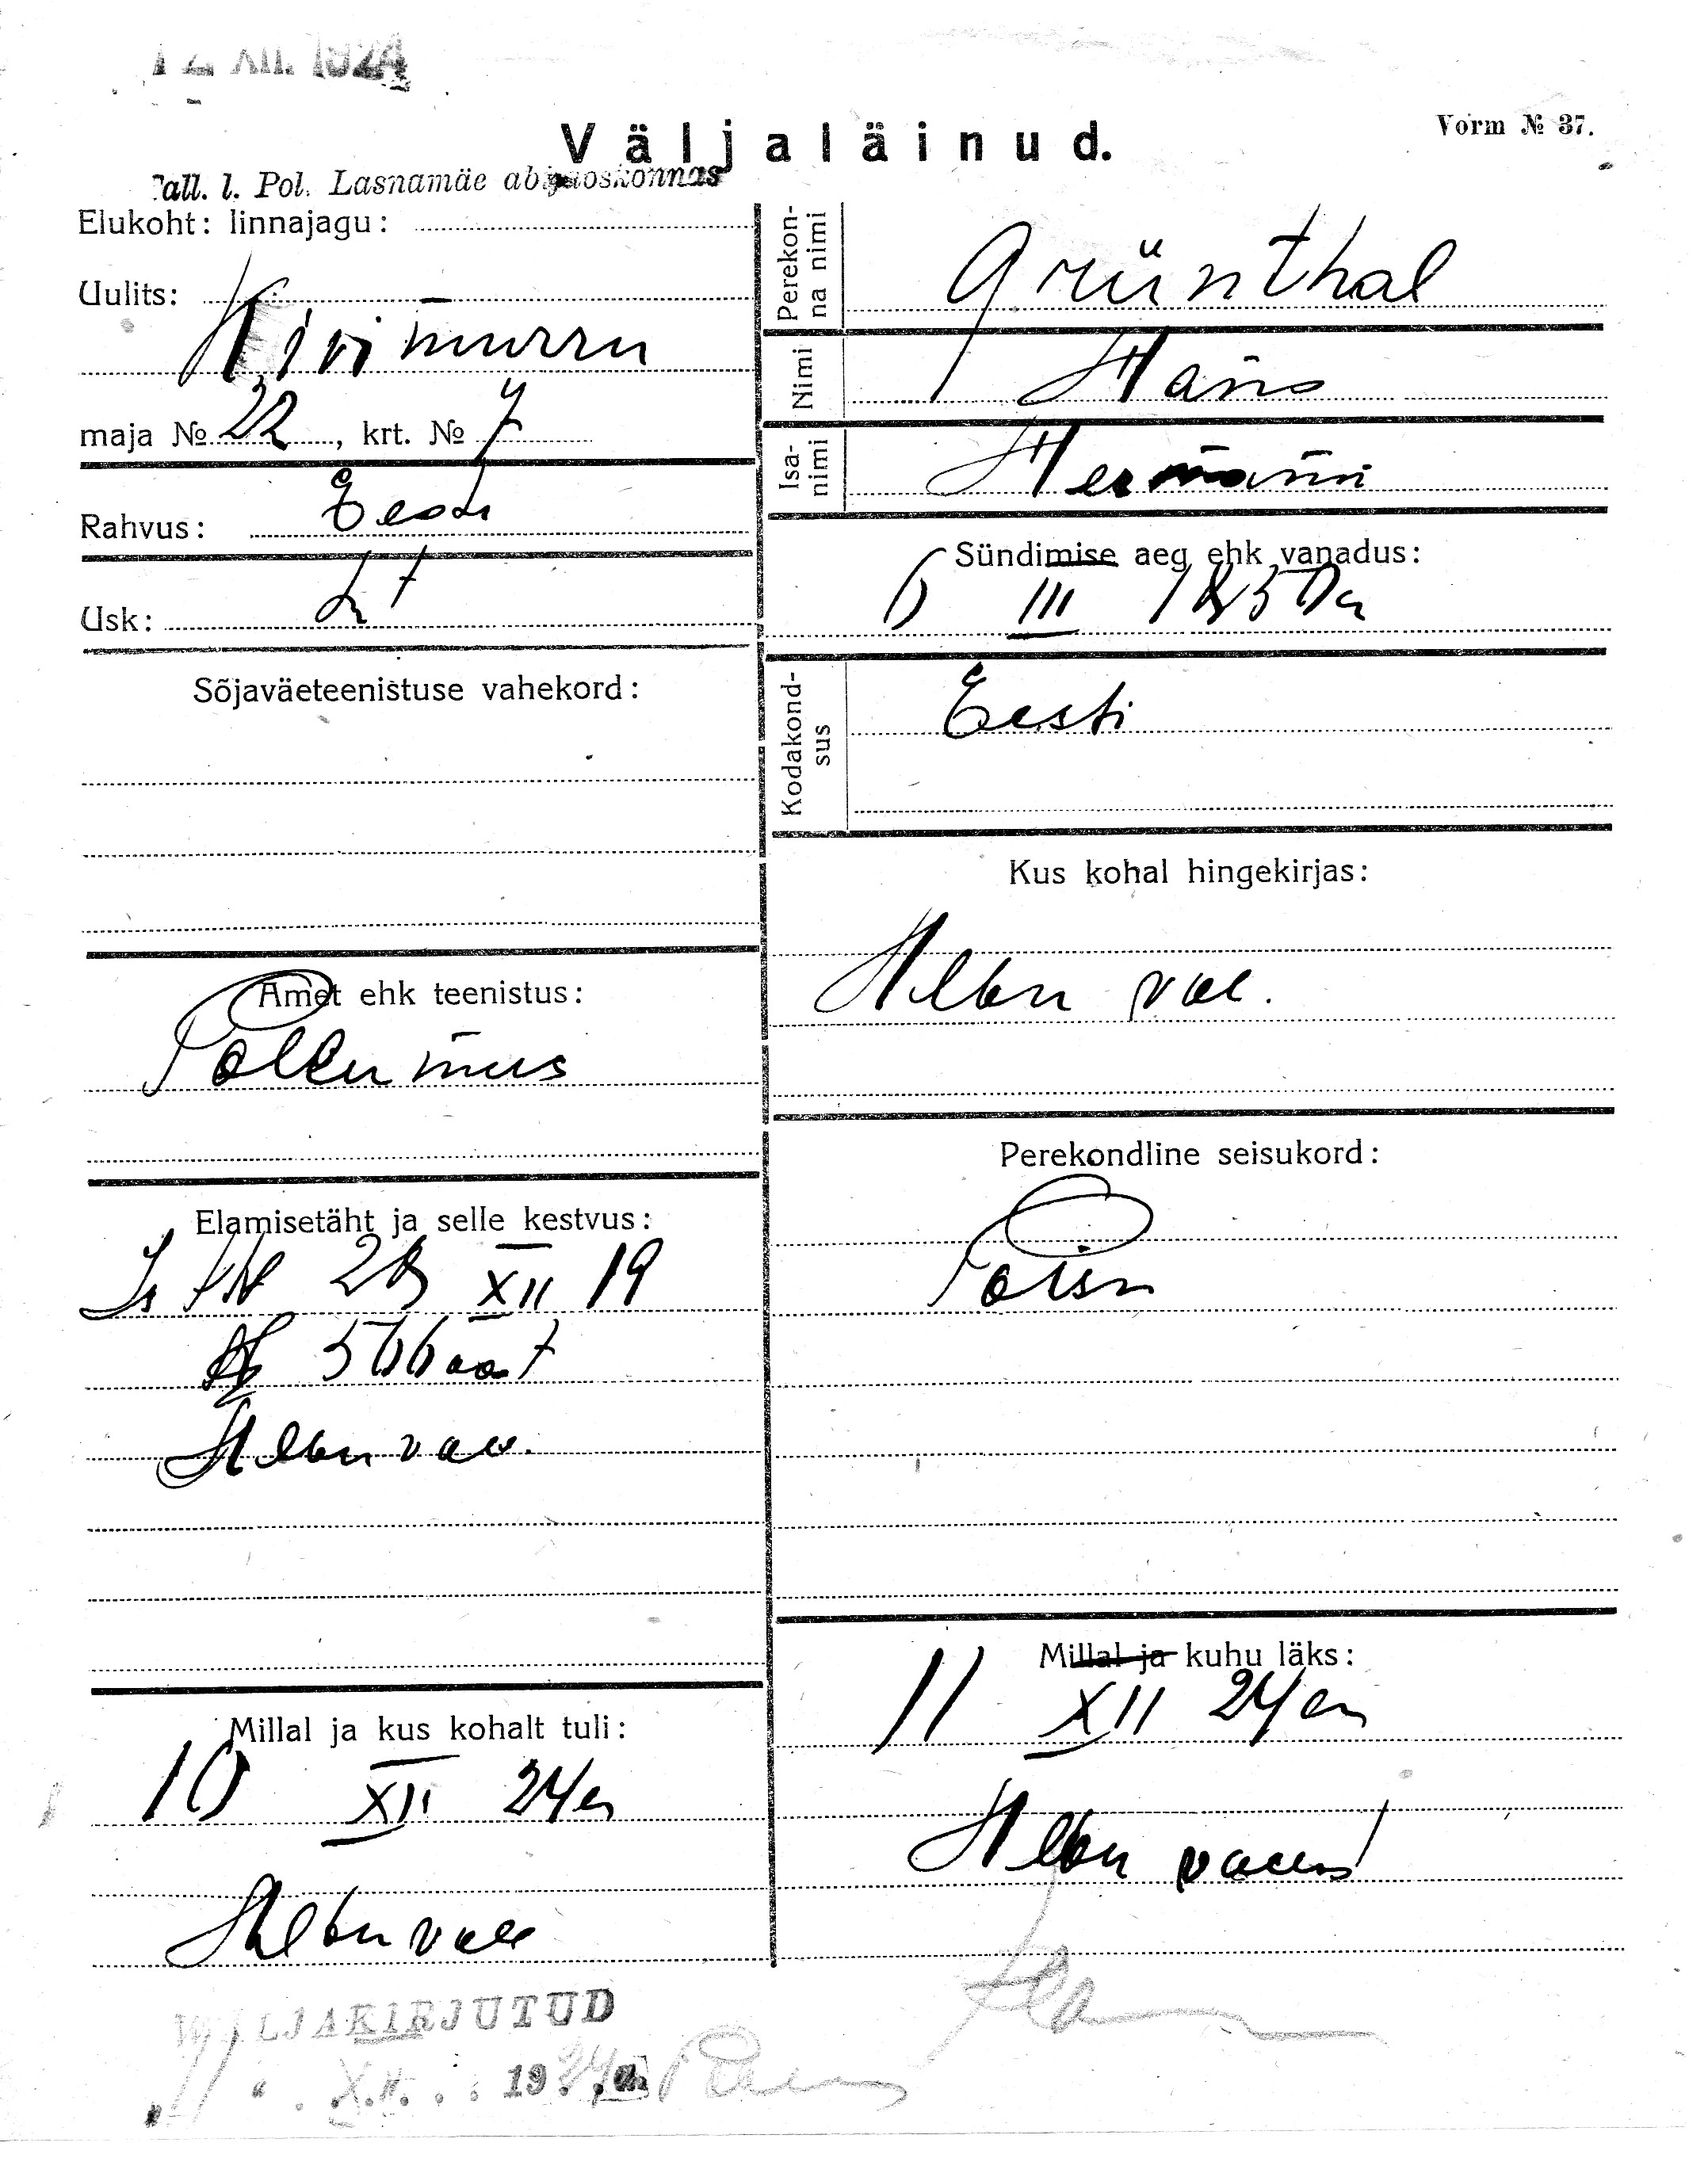 12 XII. 1924
Väljaläinud.
Vorm № 37.
Tall. l. Pol. Lasnamäe abijaoskonnas
Elukoht: linnajagu:
Uulits:
Kivimurru
maja № 22, krt. № 7
Rahvus: Eesti
Usk: Lt
Sõjaväeteenistuse vahekord:
Amet ehk teenistus:
Põllumus
Elamisetäht ja selle kestvus:
XII 19
Albu val.
Millal ja kus kohalt tuli:
10 XII 24 a
Albu vall
Perekonna nimi
Grünthal
Nimi
Hans
Isanimi
Hermann
Sündimise aeg ehk vanadus:
6 III 1850 a
Kodakondsus
Eesti
Kus kohal hingekirjas:
Albu val.
Perekondline seisukord:
Poisi
Millal ja kuhu läks:
11 XII 24 a
Albu valda
WÄLJAKIRJUTUD
"11" XII. 1924 a.